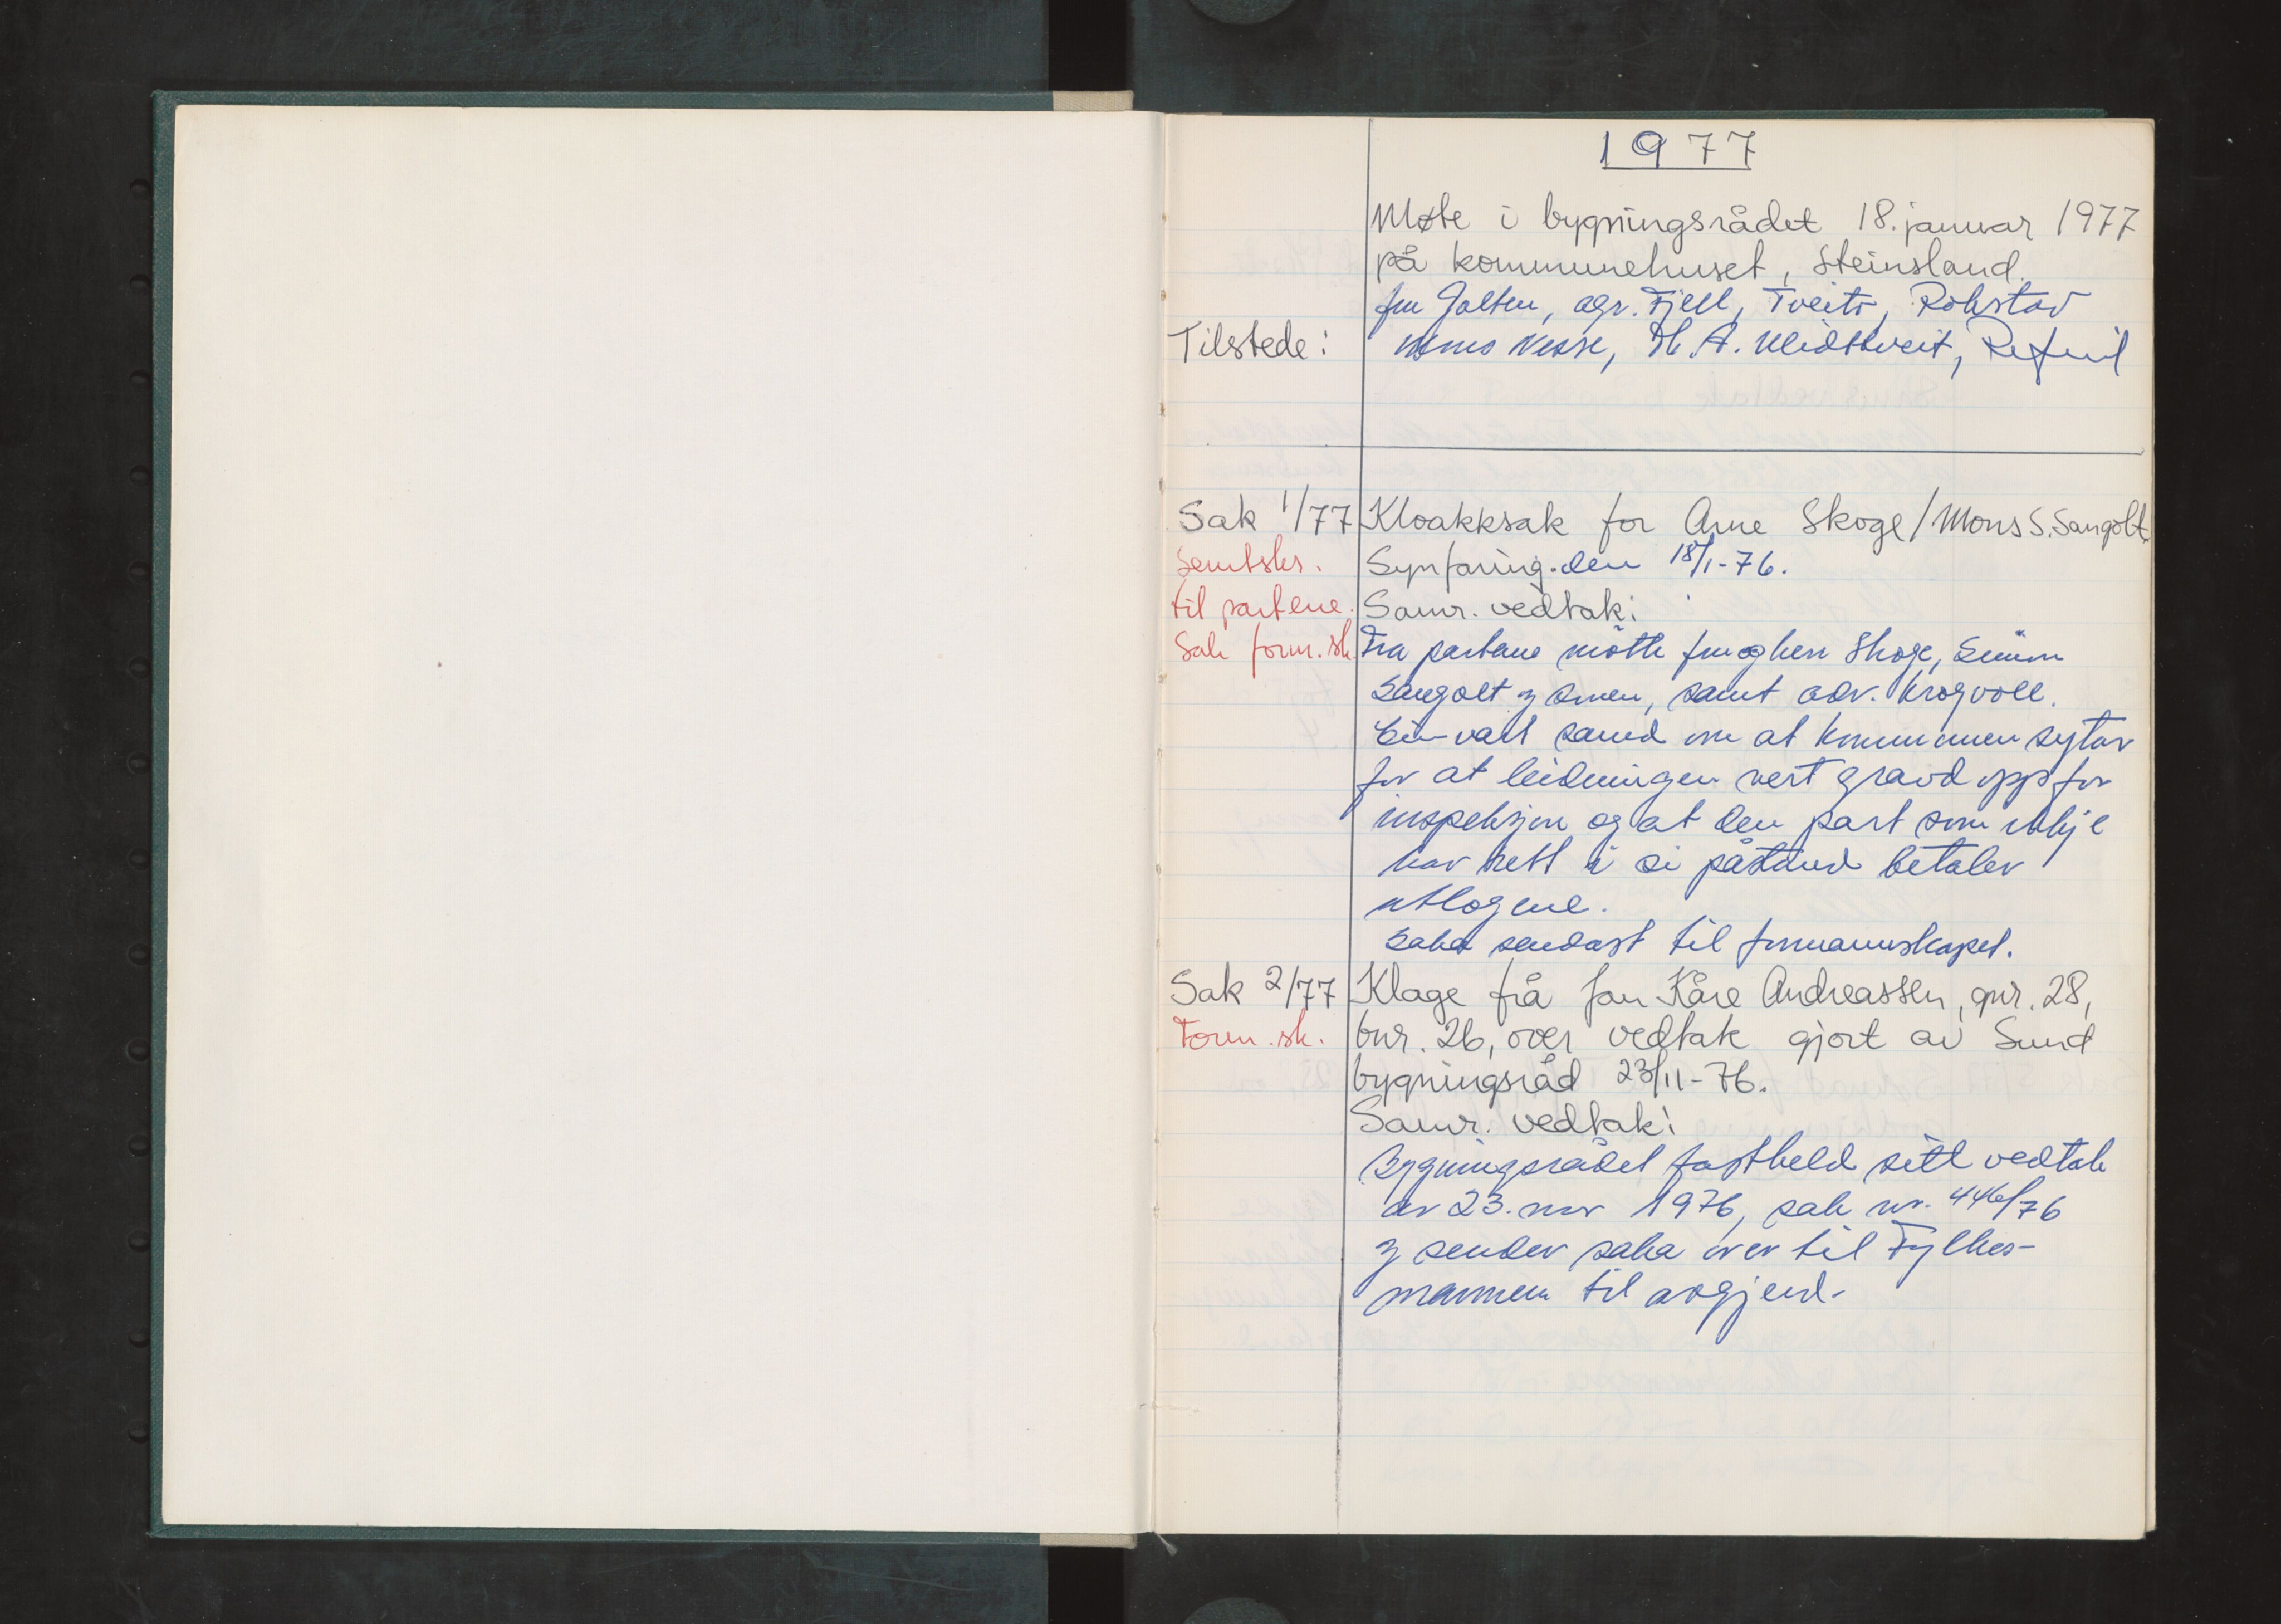 1977
Møte i bygningsrådet 18. januar 1977
på kommunehuset, Steinsland.
fru Golten, agr. Fjell, Tveito, Rokstad
Tilstede: Mons Nesse, H. A. Midttveit, Refvik
Sak 1/77 Kloakksak for Arne Skoge/Mons S. Sangolt
Sendt skr. Synfaring den 18/1-76.
til partene. Samr. vedtak:
Sak form.sk. Fra partane møtte fru og herr Skoge, Simon
Sangolt og sonen, samt adv. Krogvoll.
Ein vart samd om at kommunen sytar
for at leidningen vert gravd opp for
inspeksjon og at den part som ikkje
har rett i si påstand betaler
utlogene.
Saka sendast til formannskapet.
Sak 2/77 Klage frå Jan Kåre Andreassen, gnr. 28,
Form.sk. bnr. 26, over vedtak gjort av Sund
bygningsråd 23/11-76.
Samr. vedtak:
Bygningsrådet fastheld sitt vedtak
av 23. nov 1976, sak nr. 446/76
og sender saka over til Fylkes-
mannen til avgjerd.